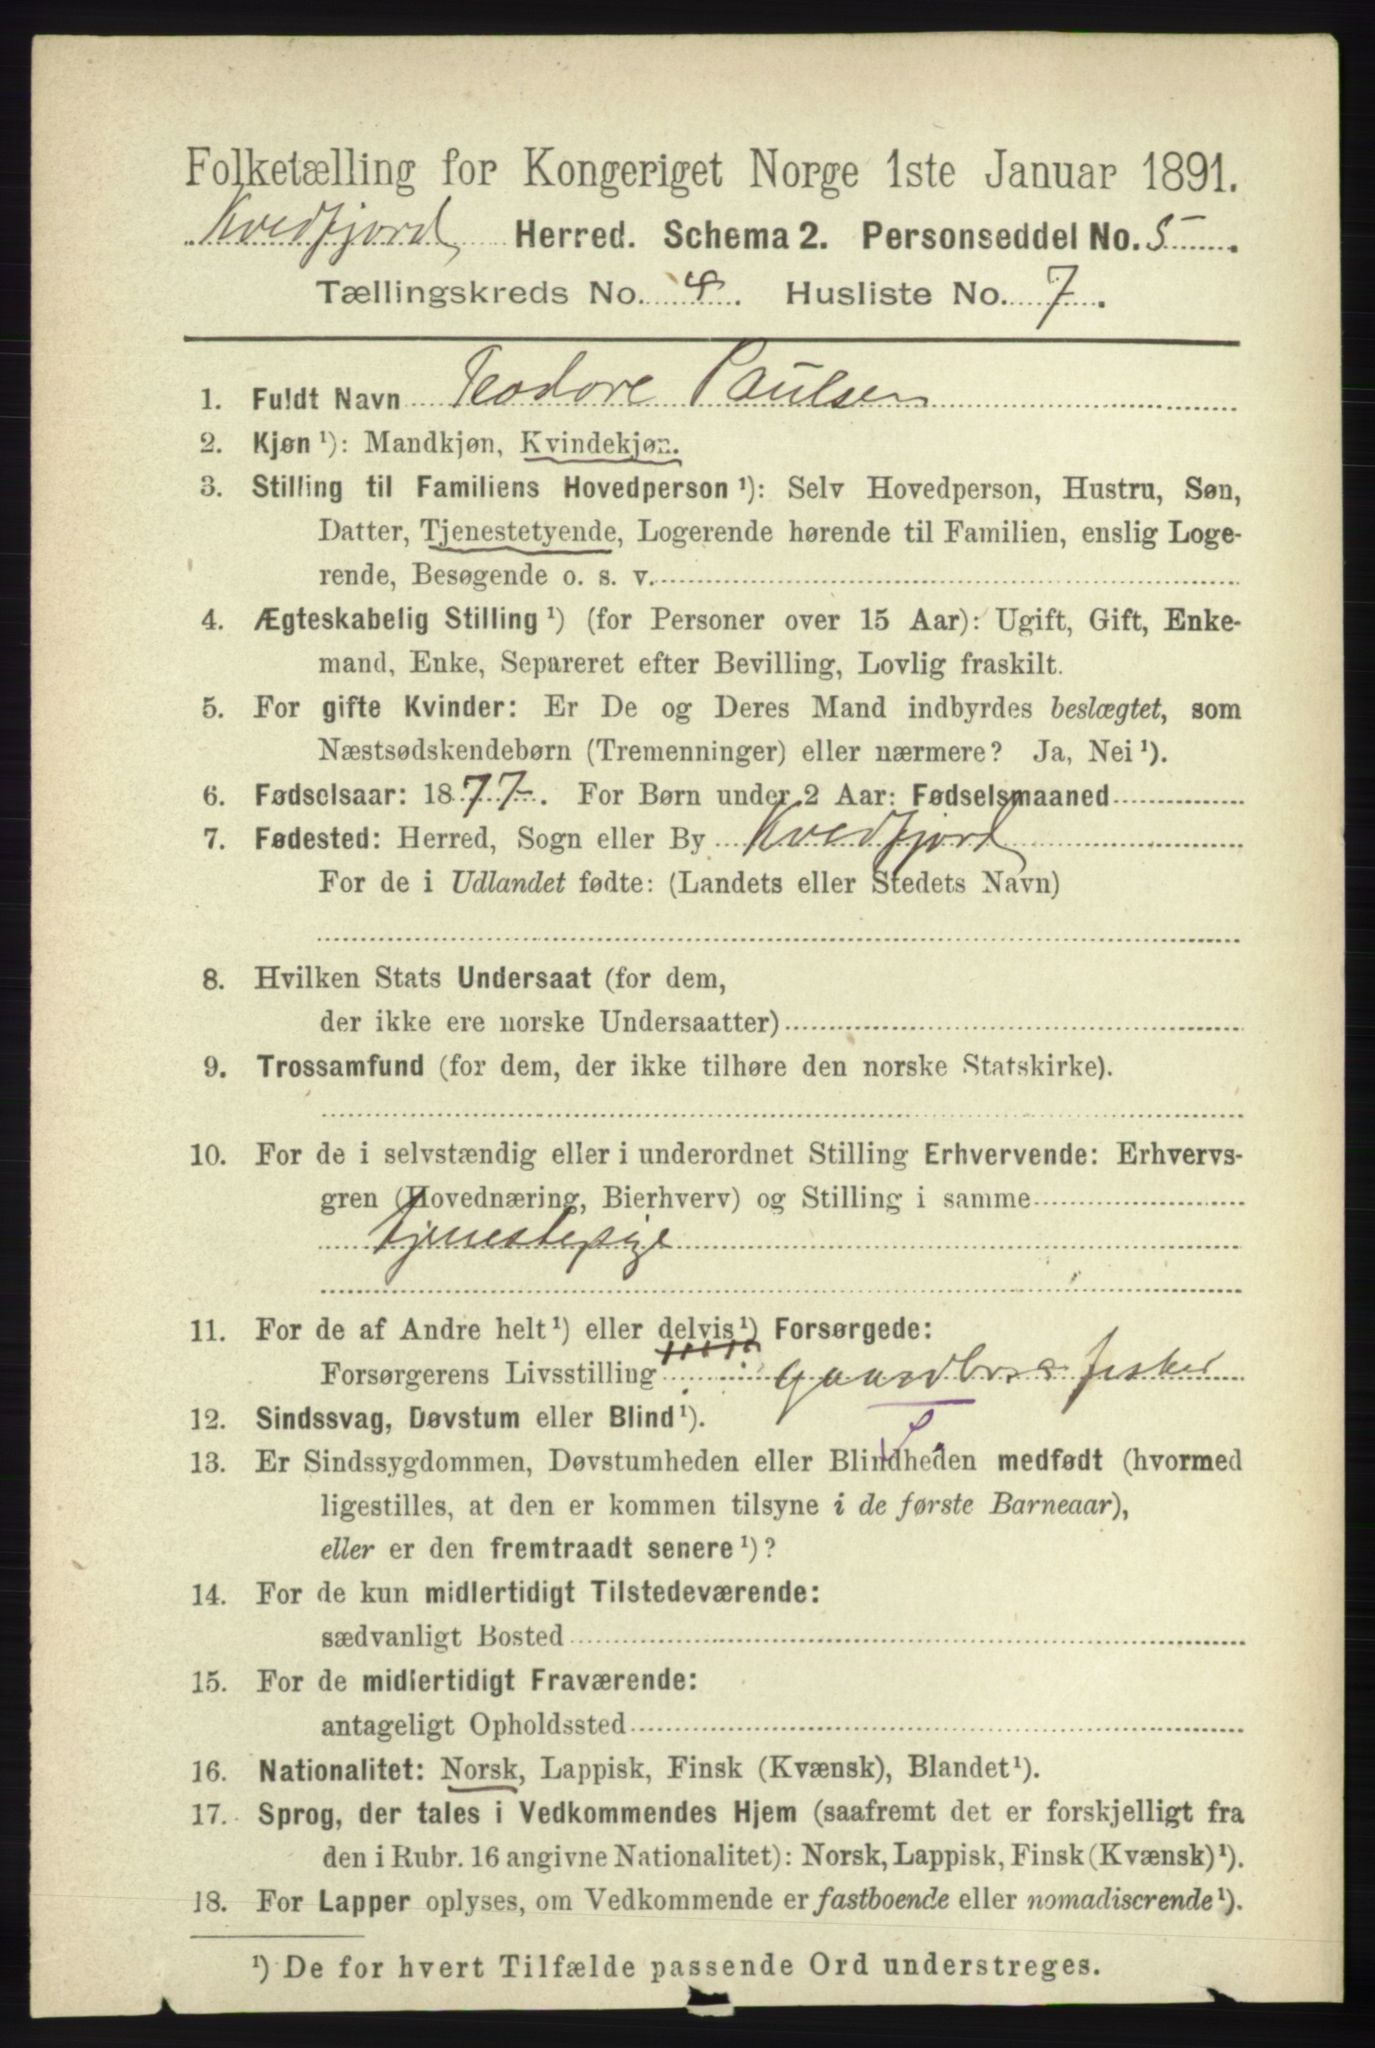 Folketælling for Kongeriget Norge 1ste Januar 1891.
Kvedfjord Herred. Schema 2. Personseddel No. 5
Tællingskreds No. 4. Husliste No. 7.
1. Fuldt Navn Teodore Paulsen
2. Kjøn ¹): Mandkjøn, Kvindekjøn.
3. Stilling til Familiens Hovedperson ¹): Selv Hovedperson, Hustru, Søn,
Datter, Tjenestetyende, Logerende hørende til Familien, enslig Loge-
rende, Besøgende o. s. v.
4. Ægteskabelig Stilling ¹) (for Personer over 15 Aar): Ugift, Gift, Enke-
mand, Enke, Separeret efter Bevilling, Lovlig fraskilt.
5. For gifte Kvinder: Er De og Deres Mand indbyrdes beslægtet, som
Næstsødskendebørn (Tremenninger) eller nærmere? Ja, Nei ¹).
6. Fødselsaar: 1877. For Børn under 2 Aar: Fødselsmaaned
7. Fødested: Herred, Sogn eller By Kvedfjord
For de i Udlandet fødte: (Landets eller Stedets Navn)
8. Hvilken Stats Undersaat (for dem,
der ikke ere norske Undersaatter)
9. Trossamfund (for dem, der ikke tilhøre den norske Statskirke).
10. For de i selvstændig eller i underordnet Stilling Erhvervende: Erhvervs-
gren (Hovednæring, Bierhverv) og Stilling i samme
tjenestepige
11. For de af Andre helt ¹) eller delvis ¹) Forsørgede:
Forsørgerens Livsstilling fisker
12. Sindssvag, Døvstum eller Blind ¹).
13. Er Sindssygdommen, Døvstumheden eller Blindheden medfødt (hvormed
ligestilles, at den er kommen tilsyne i de første Barneaar),
eller er den fremtraadt senere ¹)?
14. For de kun midlertidigt Tilstedeværende:
sædvanligt Bosted
15. For de midlertidigt Fraværende:
antageligt Opholdssted
16. Nationalitet: Norsk, Lappisk, Finsk (Kvænsk), Blandet ¹).
17. Sprog, der tales i Vedkommendes Hjem (saafremt det er forskjelligt fra
den i Rubr. 16 angivne Nationalitet): Norsk, Lappisk, Finsk (Kvænsk) ¹).
18. For Lapper oplyses, om Vedkommende er fastboende eller nomadiserende ¹).
¹) De for hvert Tilfælde passende Ord understreges.